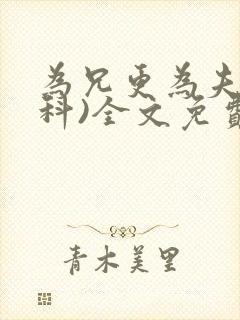 為兄更為夫
科)全文免費
青木美里